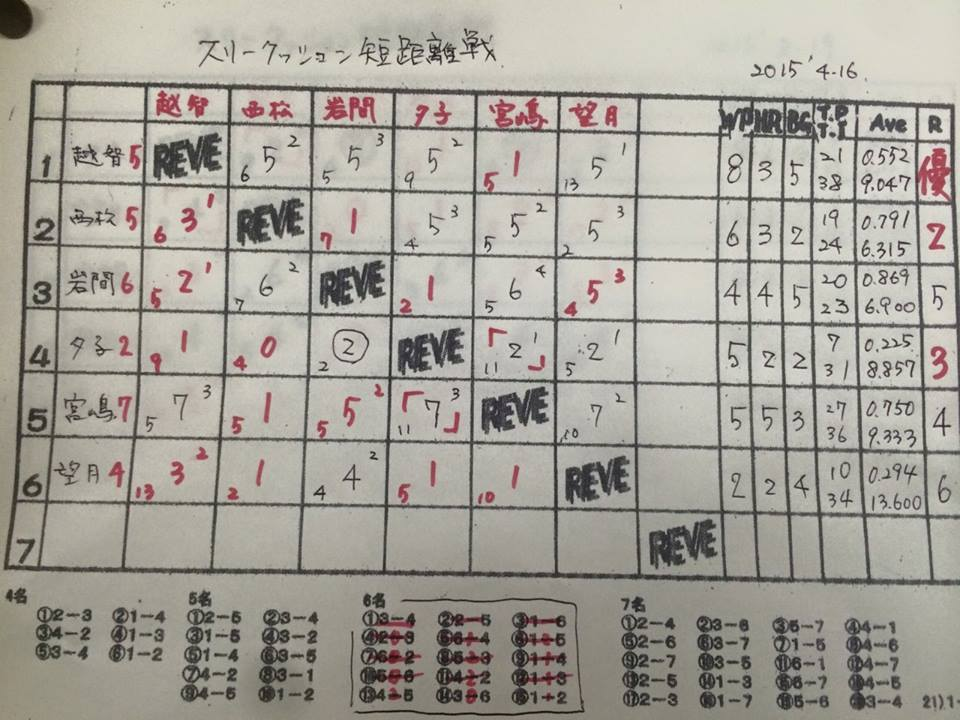 スリークッション短距離戦
2015'4.16.
越智 西松 岩間 夕子 宮嶋 望月 WP HR BG T.P T.I Ave R
1 越智5 REVE 6 5 2 5 5 3 9 5 2 5 1 13 5 1 8 3 5 21 38 0.552 9.047 優
2 西松5 6 3 1 REVE 7 1 4 5 3 5 5 2 2 5 3 6 3 2 19 24 0.791 6.315 2
3 岩間6 5 2 1 7 6 2 REVE 2 1 5 6 4 4 5 3 4 4 5 20 23 0.869 6.900 5
4 夕子2 9 1 4 0 2 2 REVE 「11 2 1」 5 2 1 5 2 2 7 31 0.225 8.857 3
5 宮嶋7 5 7 3 5 1 5 5 2 「11 7 3」 REVE 10 7 2 5 5 3 27 36 0.750 9.333 4
6 望月4 13 3 2 2 1 4 4 2 5 1 10 1 REVE 2 2 4 10 34 0.294 13.600 6
7 REVE
4名
①2-3 ②1-4
③4-2 ④1-3
⑤3-4 ⑥1-2
5名
①2-5 ②3-4
③1-5 ④3-2
⑤1-4 ⑥3-5
⑦4-2 ⑧3-1
⑨4-5 ⑩1-2
6名
①3-4 ②2-5 ③1-6
⑦6-2 ⑧5-3 ⑨1-4
⑬4-5 ⑭3-6 ⑮1-2
7名
①2-4 ②3-6 ③5-7 ④4-1
⑤2-6 ⑥3-7 ⑦1-5 ⑧4-6
⑨2-7 ⑩3-5 ⑪6-1 ⑫4-7
⑬2-5 ⑭1-3 ⑮6-7 ⑯4-5
⑰2-3 ⑱1-7 ⑲5-6 ⑳3-4 21)1-